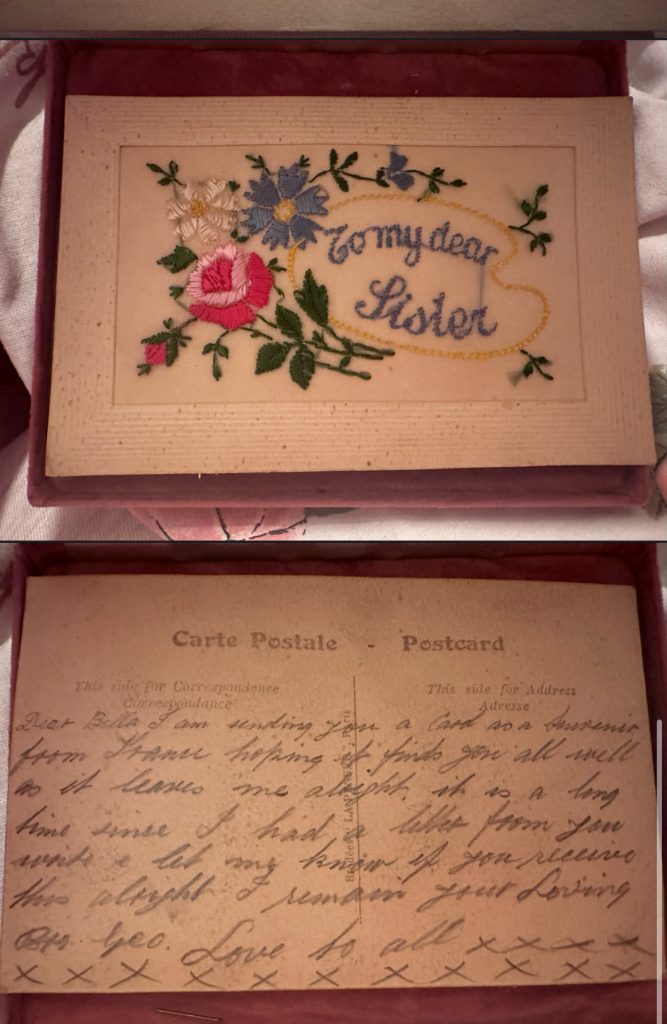 To my dear
Sister
Carte Postale - Postcard
This side for Correspondence
Correspondance
This side for Address
Adresse
Dear Bella I am sending you a Card as a Souvenir
from France hoping it finds you all well
as it leaves me alright. it is a long
time since I had a letter from you
write & let my know if you receive
this alright I remain your Loving
Bro Geo. Love to all x x x x
x x x x x x x x x x x